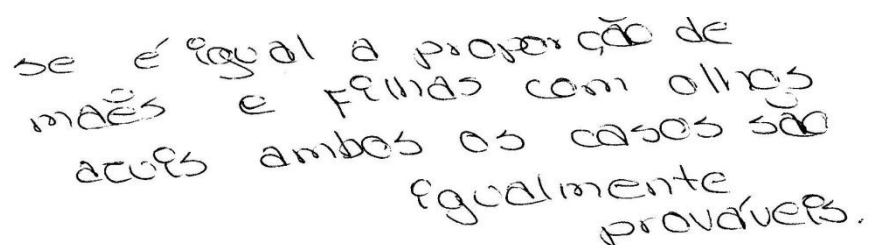 se é igual a proporção de
maẽs e Filhas com olhos
azuis ambos os casos são
igualmente
prováveis.